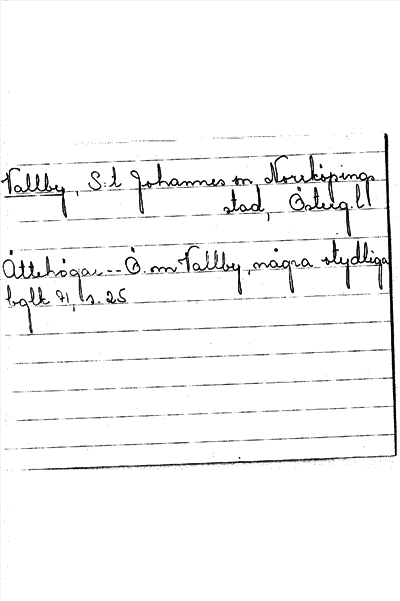 Vallby, S:t Johannes sn, Norrköpings
stad, Östergl
Ättehögar-- Ö.m Vallby, några otydliga
bglt 71, s. 25